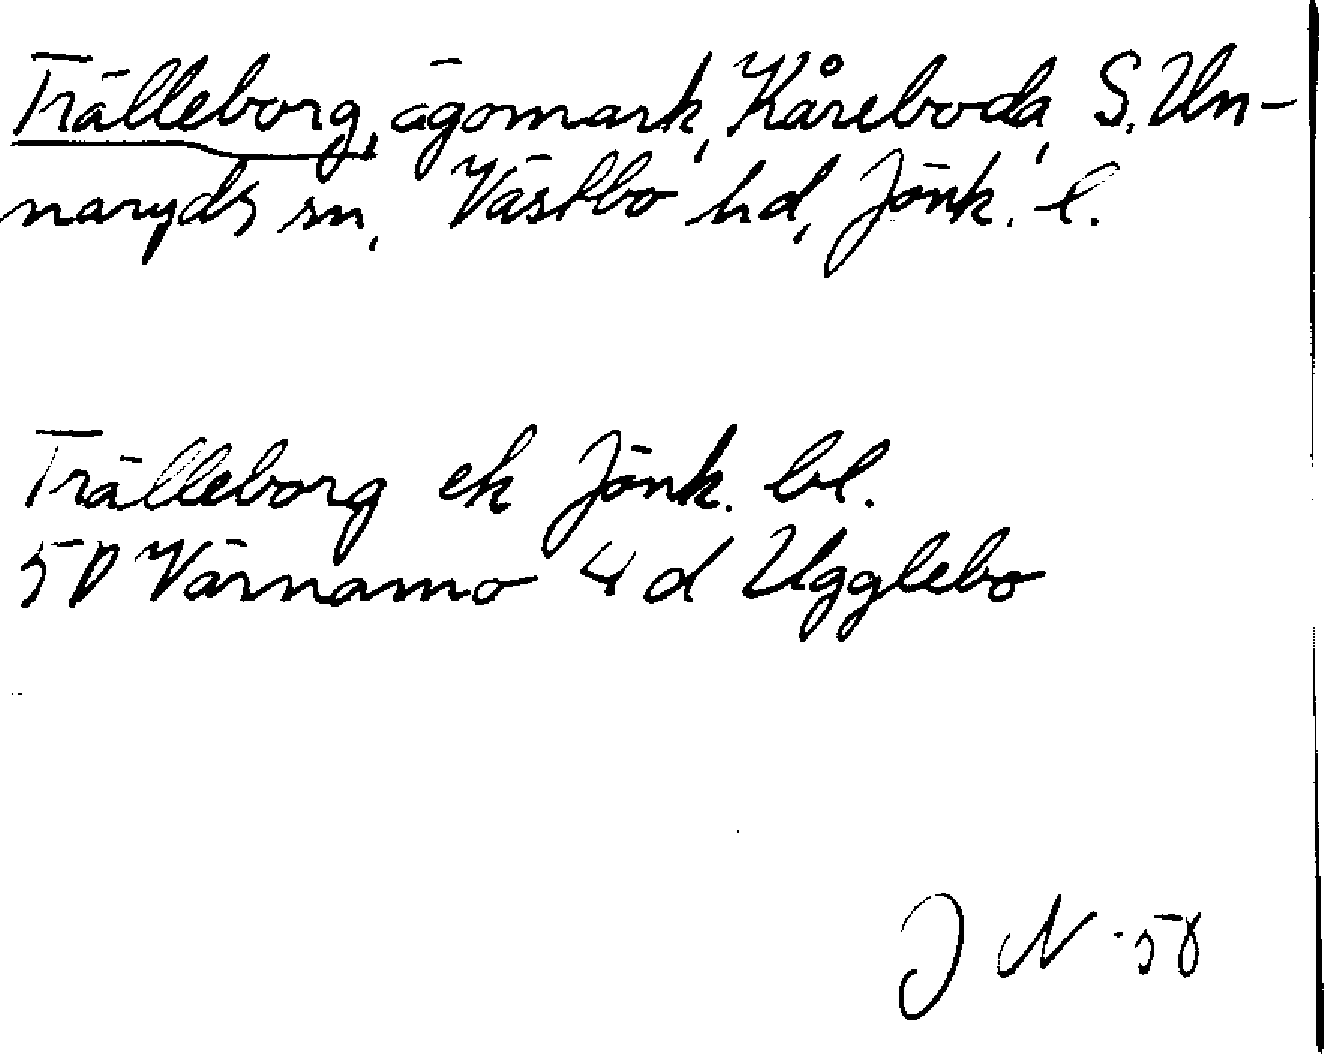 Trälleborg, ägomark, Kåreboda, S. Un-
naryds sn, Västbo hd, Jönk. l.
Trälleborg ek Jönk. bl.
5D Värnamo 4 d Ugglebo
J N -58